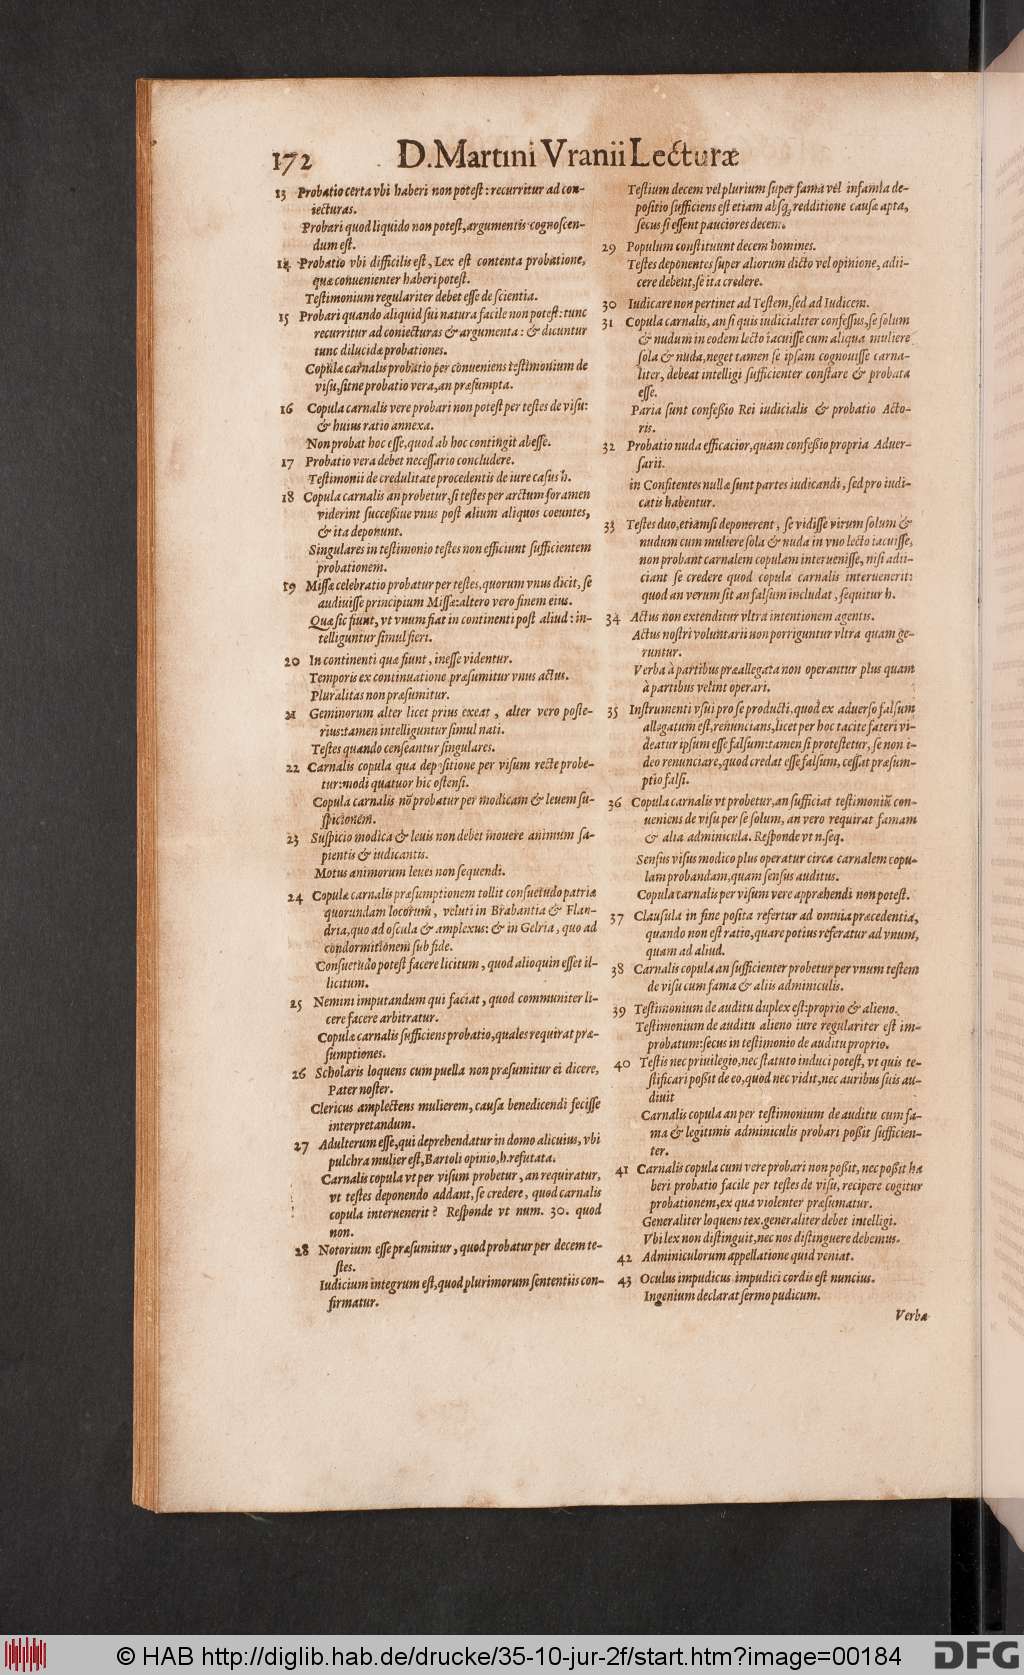 172 D. Martini Vranii Lecturæ
13 Probatio certa vbi haberi non potest: recurritur ad con-
iecturas.
Probari quod liquido non potest, argumentis cognoscen-
dum est.
14 Probatio vbi difficilis est, Lex est contenta probatione,
quæ conuenienter haberi potest.
Testimonium regulariter debet esse de scientia.
15 Probari quando aliquid sui natura facile non potest: tunc
recurritur ad coniecturas & argumenta: & dicuntur
tunc dilucidæ probationes.
Copulæ carnalis probatio per conueniens testimonium de
visu, sitne probatio vera, an præsumpta.
16 Copula carnalis vere probari non potest per testes de visu:
& huius ratio annexa.
Non probat hoc esse, quod ab hoc contingit abesse.
17 Probatio vera debet necessario concludere.
Testimonii de credulitate procedentis de iure casus h.
18 Copula carnalis an probetur, si testes per arctum foramen
viderint successiue vnus post alium aliquos coeuntes,
& ita deponunt.
Singulares in testimonio testes non efficiunt sufficientem
probationem.
19 Missæ celebratio probatur per testes, quorum vnus dicit, se
audiuisse principium Missæ: altero vero finem eius.
Quæ sic fiunt, vt vnum fiat in continenti post aliud: in-
telliguntur simul fieri.
20 In continenti quæ fiunt, inesse videntur.
Temporis ex continuatione præsumitur vnus actus.
Pluralitas non præsumitur.
21 Geminorum alter licet prius exeat, alter vero poste-
rius: tamen intelliguntur simul nati.
Testes quando censeantur singulares.
22 Carnalis copula qua depositione per visum recte probe-
tur: modi quatuor hic ostensi.
Copula carnalis nō probatur per modicam & leuem su-
spicionem.
23 Suspicio modica & leuis non debet mouere animum sa-
pientis & iudicantis.
Motus animorum leues non sequendi.
24 Copulæ carnalis præsumptionem tollit consuetudo patriæ
quorundam locorum, veluti in Brabantia & Flan-
dria, quo ad oscula & amplexus: & in Gelria, quo ad
condormitionem sub fide.
Consuetudo potest facere licitum, quod alioquin esset il-
licitum.
25 Nemini imputandum qui faciat, quod communiter li-
cere facere arbitratur.
Copulæ carnalis sufficiens probatio, quales requirat præ-
sumptiones.
26 Scholaris loquens cum puella non præsumitur ei dicere,
Pater noster.
Clericus amplectens mulierem, causa benedicendi fecisse
interpretandum.
27 Adulterum esse, qui deprehendatur in domo alicuius, vbi
pulchra mulier est, Bartoli opinio, h. refutata.
Carnalis copula vt per visum probetur, an requiratur,
vt testes deponendo addant, se credere, quod carnalis
copula interuenerit? Responde vt num. 30. quod
non.
28 Notorium esse præsumitur, quod probatur per decem te-
stes.
Iudicium integrum est, quod plurimorum sententiis con-
firmatur.
Testium decem vel plurium super fama vel infamia de-
positio sufficiens est etiam absq; redditione causæ apta,
secus si essent pauciores decem.
29 Populum constituunt decem homines.
Testes deponentes super aliorum dicto vel opinione, adii-
cere debent, se ita credere.
30 Iudicare non pertinet ad Testem, sed ad Iudicem.
31 Copula carnalis, an si quis iudicialiter confessus, se solum
& nudum in eodem lecto iacuisse cum aliqua muliere
sola & nuda, neget tamen se ipsam cognouisse carna-
liter, debeat intelligi sufficienter constare & probata
esse.
Paria sunt confessio Rei iudicialis & probatio Acto-
ris.
32 Probatio nuda efficacior, quam confessio propria Aduer-
sarii.
in Confitentes nullæ sunt partes iudicandi, sed pro iudi-
catis habentur.
33 Testes duo, etiamsi deponerent, se vidisse virum solum &
nudum cum muliere sola & nuda in vno lecto iacuisse,
non probant carnalem copulam interuenisse, nisi adii-
ciant se credere quod copula carnalis interuenerit:
quod an verum sit an falsum includat, sequitur h.
34 Actus non extenditur vltra intentionem agentis.
Actus nostri voluntarii non porriguntur vltra quam ge-
runtur.
Verba à partibus præallegata non operantur plus quam
à partibus velint operari.
35 Instrumenti vsui pro se producti, quod ex aduerso falsum
allegatum est, renuncians, licet per hoc tacite fateri vi-
deatur ipsum esse falsum: tamen si protestetur, se non i-
deo renunciare, quod credat esse falsum, cessat præsum-
ptio falsi.
36 Copula carnalis vt probetur, an sufficiat testimoniū con-
ueniens de visu per se solum, an vero requirat famam
& alia adminicula. Responde vt n. seq.
Sensus visus modico plus operatur circa carnalem copu-
lam probandam, quam sensus auditus.
Copula carnalis per visum vere apprehendi non potest.
37 Clausula in fine posita refertur ad omnia præcedentia,
quando non est ratio, quare potius referatur ad vnum,
quam ad aliud.
38 Carnalis copula an sufficienter probetur per vnum testem
de visu cum fama & aliis adminiculis.
39 Testimonium de auditu duplex est: proprio & alieno.
Testimonium de auditu alieno iure regulariter est im-
probatum: secus in testimonio de auditu proprio.
40 Testis nec priuilegio, nec statuto induci potest, vt quis te-
stificari possit de eo, quod nec vidit, nec auribus suis au-
diuit
Carnalis copula an per testimonium de auditu cum fa-
ma & legitimis adminiculis probari possit sufficien-
ter.
41 Carnalis copula cum vere probari non possit, nec possit ha
beri probatio facile per testes de visu, recipere cogitur
probationem, ex qua violenter præsumatur.
Generaliter loquens tex. generaliter debet intelligi.
Vbi lex non distinguit, nec nos distinguere debemus.
42 Adminiculorum appellatione quid veniat.
43 Oculus impudicus impudici cordis est nuncius.
Ingenium declarat sermo pudicum.
Verba
© HAB http://diglib.hab.de/drucke/35-10-jur-2f/start.htm?image=00184
DFG